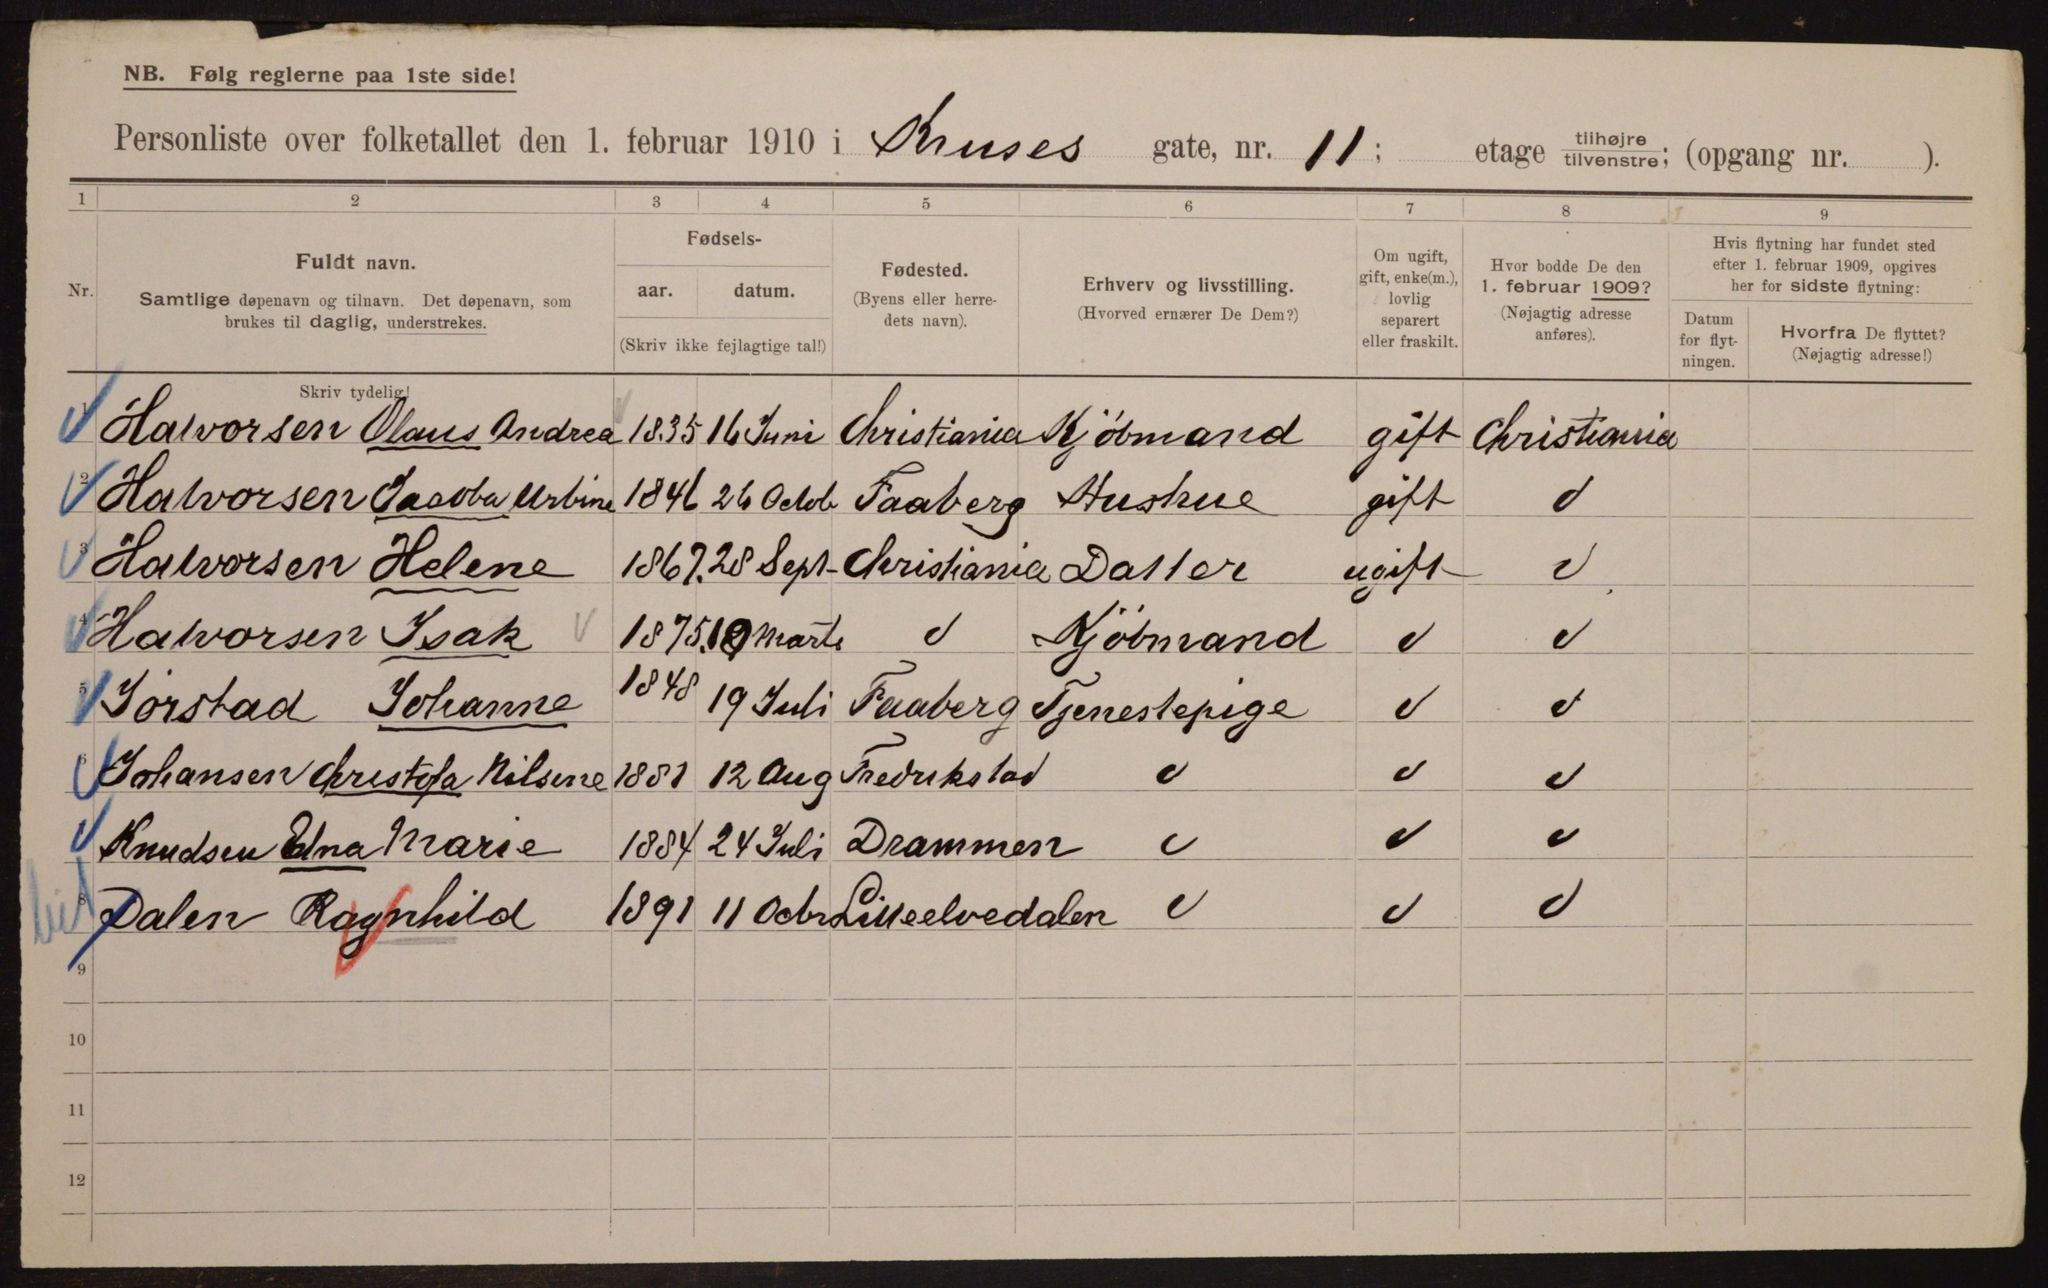 NB. Følg reglerne paa 1ste side!
Personliste over folketallet den 1. februar 1910 i Kruses gate, nr. 11; etage tilhøjre tilvenstre; (opgang nr. ).
1 2 3 4 5 6 7 8 9
Nr.
Fuldt navn.
Samtlige døpenavn og tilnavn. Det døpenavn, som
brukes til daglig, understrekes.
Fødsels-
aar. datum.
(Skriv ikke fejlagtige tal!)
Fødested.
(Byens eller herre-
dets navn).
Erhverv og livsstilling.
(Hvorved ernærer De Dem?)
Om ugift,
gift, enke(m.),
lovlig
separert
eller fraskilt.
Hvor bodde De den
1. februar 1909?
(Nøjagtig adresse
anføres).
Hvis flytning har fundet sted
efter 1. februar 1909, opgives
her for sidste flytning:
Datum
for flyt-
ningen.
Hvorfra De flyttet?
(Nøjagtig adresse!)
Skriv tydelig!
1 Halvorsen Olaus Andrea 1835 16 Juni Christiania Kjöbmand gift Christiania
2 Halvorsen Jacoba Urbine 1846 26 Octob Faaberg Hushue gift
3 Halvorsen Helene 1867. 28 Sept Christiania Datter ugift
4 Halvorsen Isak 1875. Marts Kjöbmand
5 Jørstad Johanne 1848 19 Juli Faaberg Tjenestepige
6 Johansen Christofa Nilsine 1881 12 Aug Fredrikstad
Knudsen Edna Marie 1884 24 Juli Drammen
8 Dalen Ragnhild 1891 11 Octr Lilleelvedalen
9
10
11
12